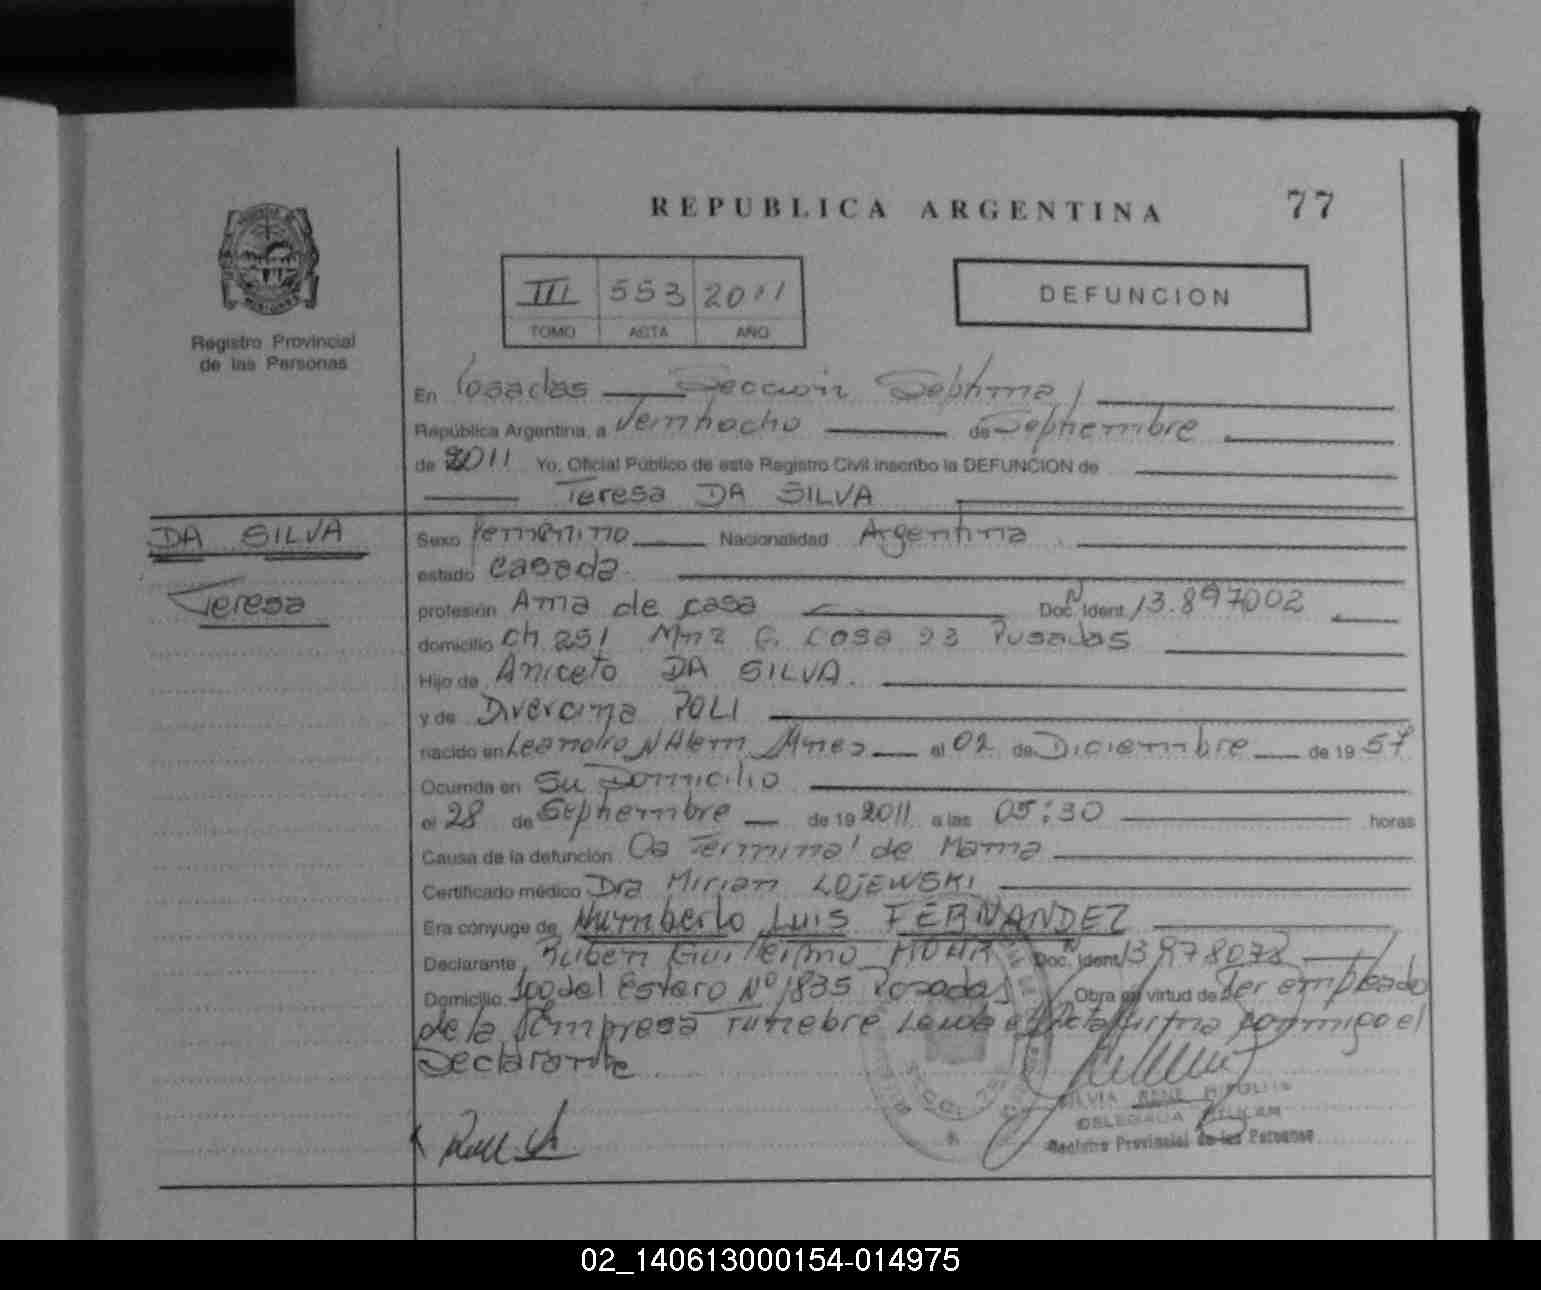 REPUBLICA ARGENTINA 77
III 553 2011
TOMO ACTA AÑO
DEFUNCION
Registro Provincial
de las Personas
En Posadas Sección Septima
República Argentina, a Veintiocho de Septiembre
de 2011 Yo, Oficial Público de este Registro Civil inscribo la DEFUNCION de
Teresa DA SILVA
DA SILVA
Teresa
Sexo Femenino Nacionalidad Argentina
estado Casada
profesión Ama de casa Doc. Ident. 13.897002
domicilio Ch 251 Mnz G. Casa 23 Posadas
Hijo de Aniceto DA SILVA
y de Divercina POLI
nacido en Leandro N Alem Mnes el 02 de Diciembre de 19 57
Ocurrida en Su Domicilio
el 28 de Septiembre de 19 2011 a las 05:30 horas
Causa de la defunción Ca Terminal de Mama
Certificado médico Dra Mirian LOJEWSKI
Era cónyuge de Humberto Luis FERNANDEZ
Declarante Ruben Guillermo Doc. Ident. 13978078
Domicilio Sgo del Estero Nº 1835 Posadas Obra en virtud de Ser empleado
de la Empresa Funebre Leida el Acta firma conmigo el
Declarante
SILVIA RENE
DELEGADA TITULAR
Registro Provincial de las Personas
02_140613000154-014975